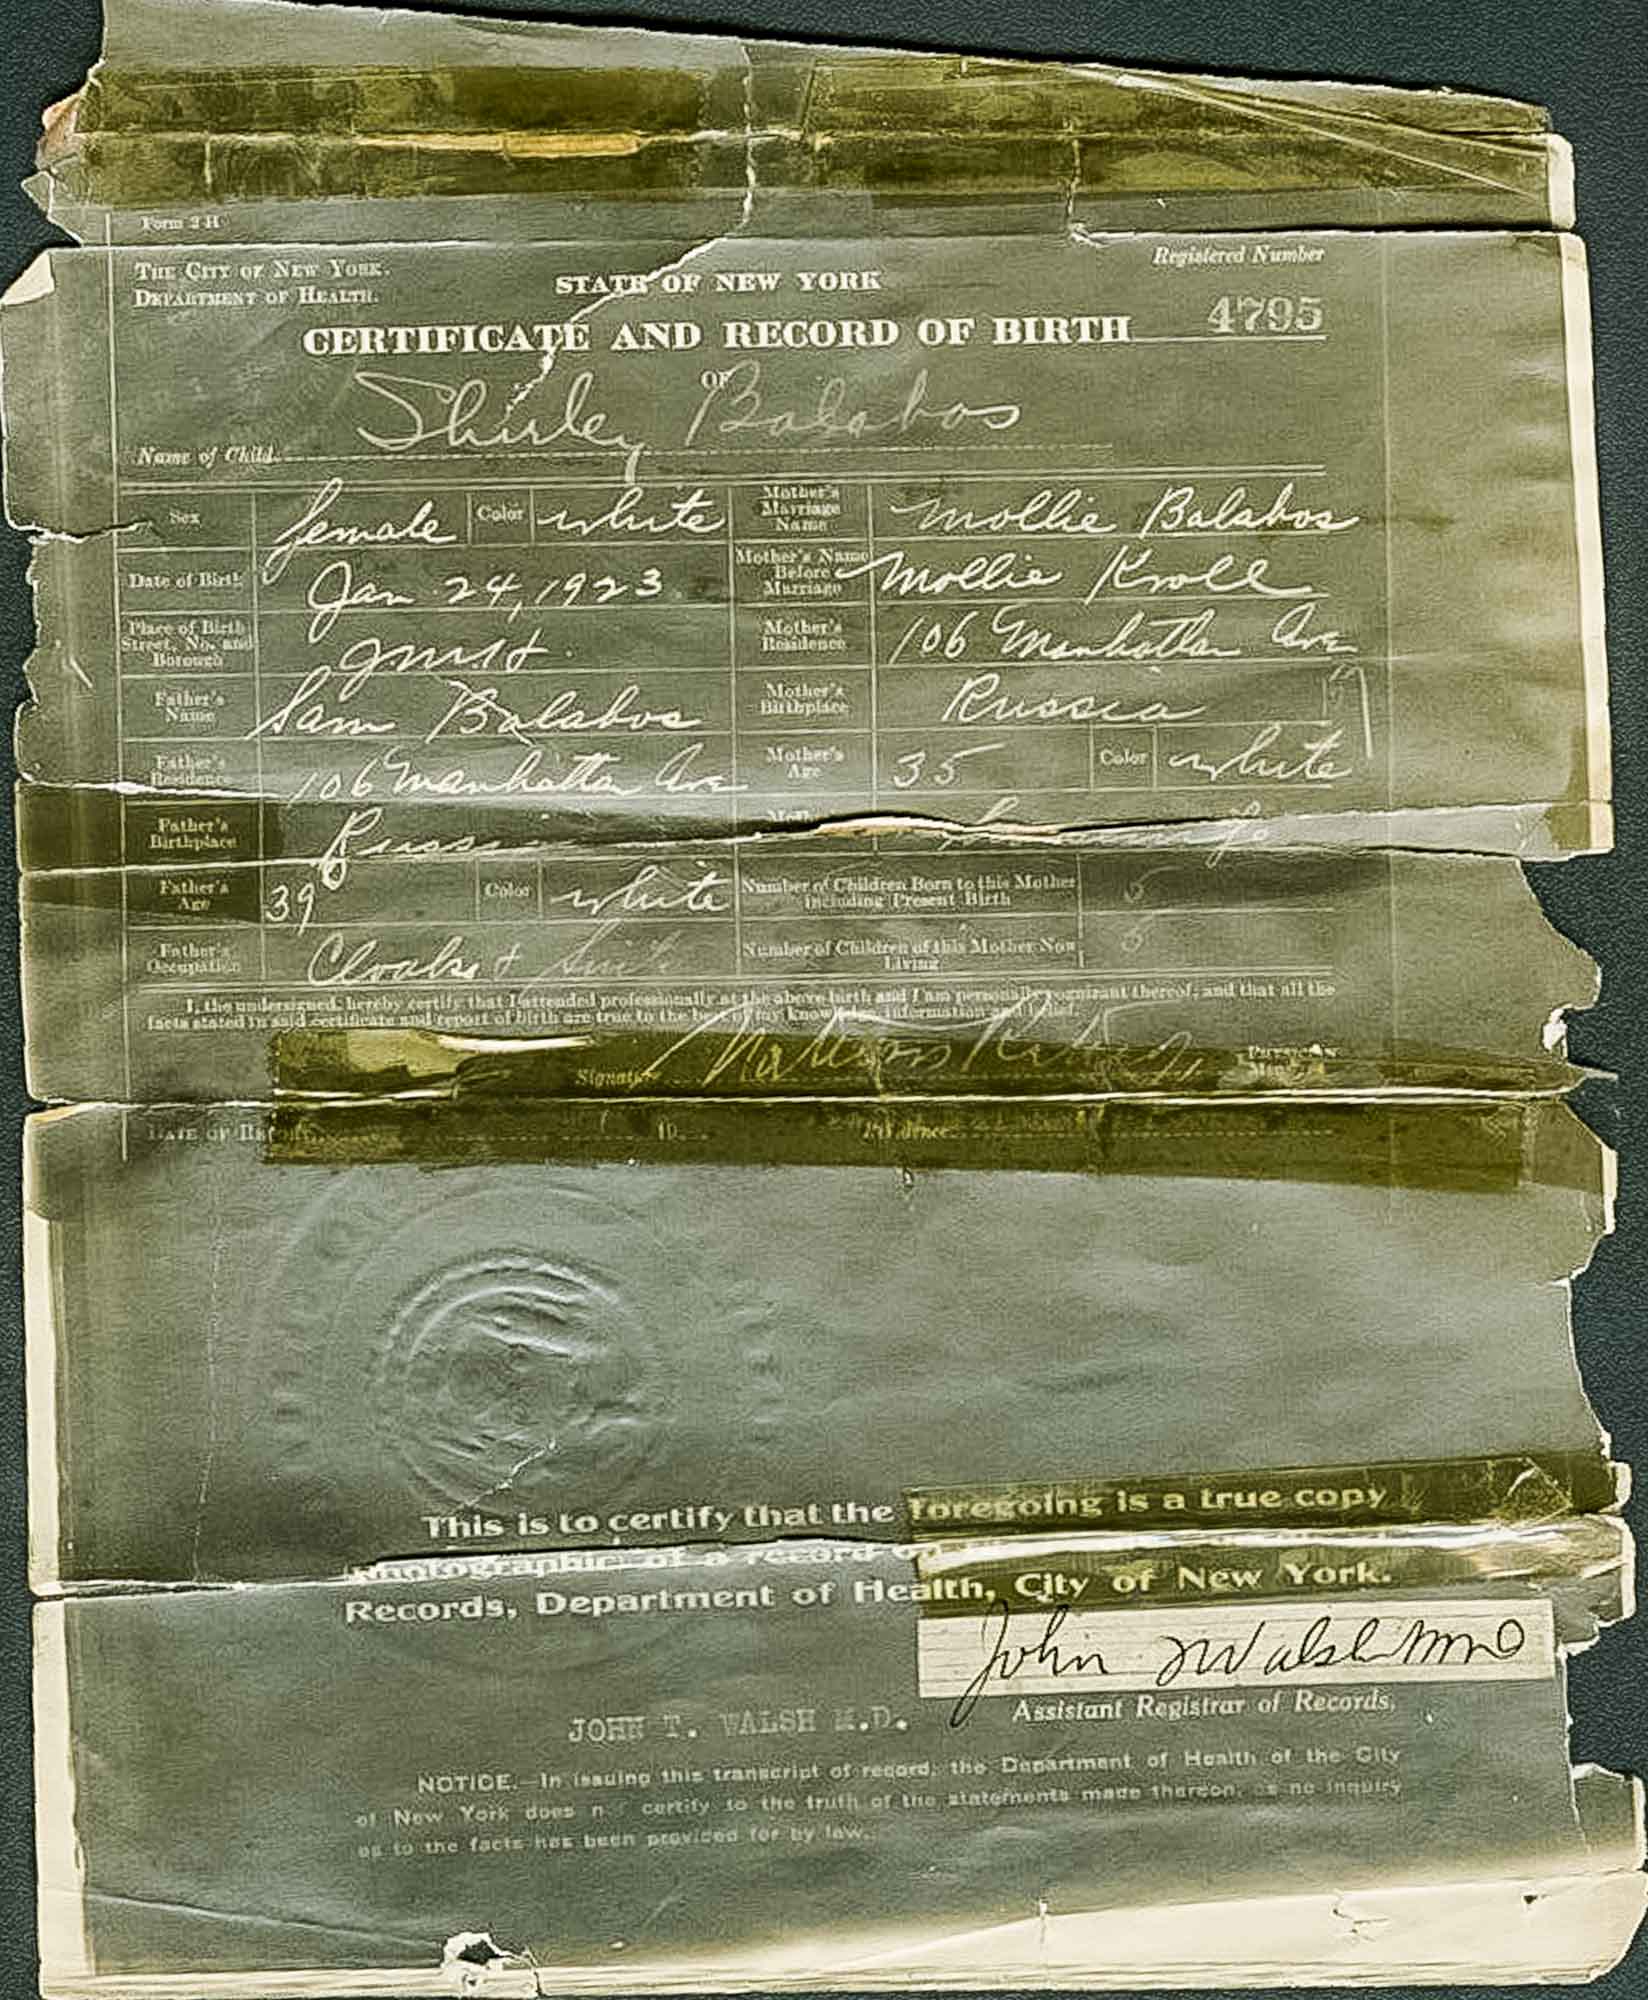 Form 2 H
THE CITY OF NEW YORK.
DEPARTMENT OF HEALTH.
STATE OF NEW YORK
Registered Number
CERTIFICATE AND RECORD OF BIRTH
4795
OF
Name of Child Shirley Balabos
Sex female Color white Mother's Marriage Name Mollie Balabos
Date of Birth Jan 24, 1923 Mother's Name Before Marriage Mollie Kroll
Place of Birth Street, No. and Borough Mother's Residence 106 Manhattan Ave
Father's Name Sam Balabos Mother's Birthplace Russia
Father's Residence 106 Manhattan Ave Mother's Age 35 Color white
Father's Birthplace
Father's Age 39 Color white Number of Children Born to this Mother including Present Birth
Father's Occupation Cloaks & Number of Children of this Mother Now Living
I, the undersigned, hereby certify that I attended professionally at the above birth and I am personally cognizant thereof; and that all the
facts stated in said certificate and report of birth are true to the best of my knowledge, information and belief.
Signature PHYSICIAN
DATE OF 19 Residence
This is to certify that the foregoing is a true copy
photographic of a record
Records, Department of Health, City of New York.
John T Walsh MD
Assistant Registrar of Records.
JOHN T. WALSH M.D.
NOTICE.—In issuing this transcript of record, the Department of Health of the City
of New York does certify to the truth of the statements made thereon, as no inquiry
as to the facts has been provided for by law.